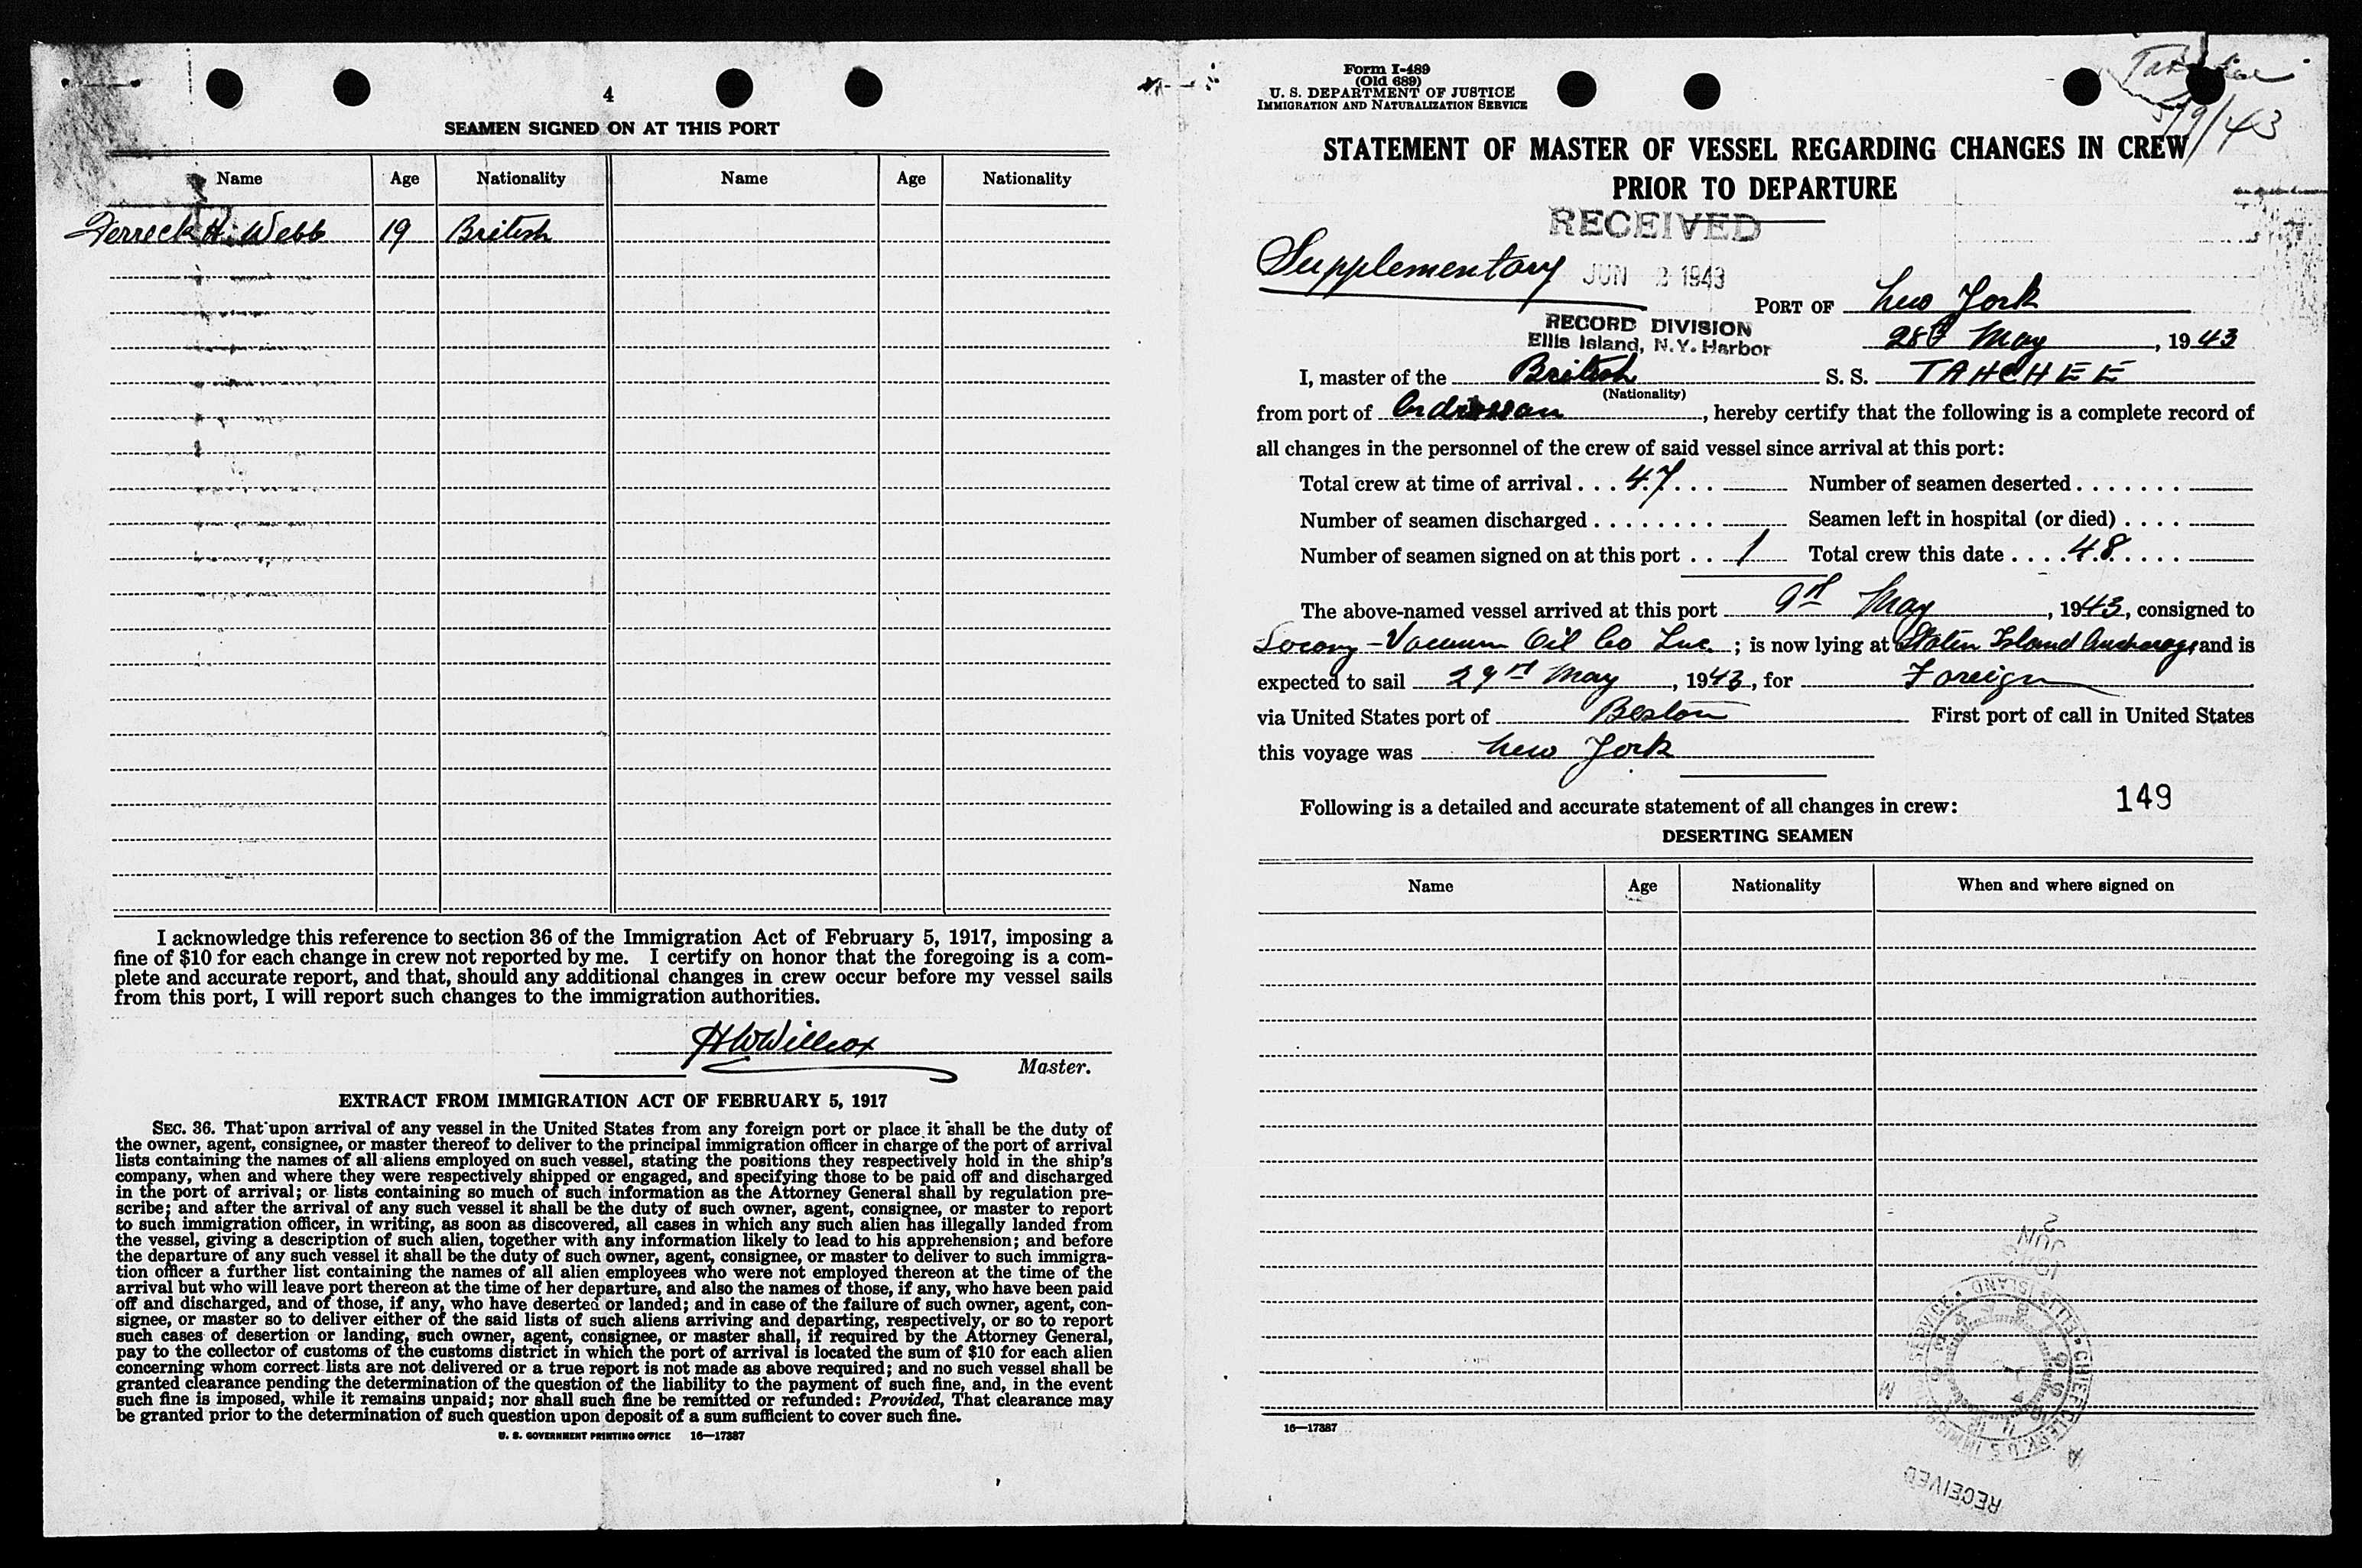 4
SEAMEN SIGNED ON AT THIS PORT
Name Age Nationality Name Age Nationality
Derreck H. Webb 19 British
I acknowledge this reference to section 36 of the Immigration Act of February 5, 1917, imposing a
fine of $10 for each change in crew not reported by me. I certify on honor that the foregoing is a com-
plete and accurate report, and that, should any additional changes in crew occur before my vessel sails
from this port, I will report such changes to the immigration authorities.
HWWillcox
Master.
EXTRACT FROM IMMIGRATION ACT OF FEBRUARY 5, 1917
SEC. 36. That upon arrival of any vessel in the United States from any foreign port or place it shall be the duty of
the owner, agent, consignee, or master thereof to deliver to the principal immigration officer in charge of the port of arrival
lists containing the names of all aliens employed on such vessel, stating the positions they respectively hold in the ship's
company, when and where they were respectively shipped or engaged, and specifying those to be paid off and discharged
in the port of arrival; or lists containing so much of such information as the Attorney General shall by regulation pre-
scribe; and after the arrival of any such vessel it shall be the duty of such owner, agent, consignee, or master to report
to such immigration officer, in writing, as soon as discovered, all cases in which any such alien has illegally landed from
the vessel, giving a description of such alien, together with any information likely to lead to his apprehension; and before
the departure of any such vessel it shall be the duty of such owner, agent, consignee, or master to deliver to such immigra-
tion officer a further list containing the names of all alien employees who were not employed thereon at the time of the
arrival but who will leave port thereon at the time of her departure, and also the names of those, if any, who have been paid
off and discharged, and of those, if any, who have deserted or landed; and in case of the failure of such owner, agent, con-
signee, or master so to deliver either of the said lists of such aliens arriving and departing, respectively, or so to report
such cases of desertion or landing, such owner, agent, consignee, or master shall, if required by the Attorney General,
pay to the collector of customs of the customs district in which the port of arrival is located the sum of $10 for each alien
concerning whom correct lists are not delivered or a true report is not made as above required; and no such vessel shall be
granted clearance pending the determination of the question of the liability to the payment of such fine, and, in the event
such fine is imposed, while it remains unpaid; nor shall such fine be remitted or refunded: Provided, That clearance may
be granted prior to the determination of such question upon deposit of a sum sufficient to cover such fine.
U. S. GOVERNMENT PRINTING OFFICE 16—17387
Form I-489
(Old 689)
U. S. DEPARTMENT OF JUSTICE
IMMIGRATION AND NATURALIZATION SERVICE
5/9/43
STATEMENT OF MASTER OF VESSEL REGARDING CHANGES IN CREW
PRIOR TO DEPARTURE
RECEIVED
Supplementary JUN 2 1943
PORT OF New York
RECORD DIVISION
Ellis Island, N.Y. Harbor
28th May, 1943
I, master of the British S. S. TAHCHEE
(Nationality)
from port of Ardrossan, hereby certify that the following is a complete record of
all changes in the personnel of the crew of said vessel since arrival at this port:
Total crew at time of arrival . . . 47 . . . Number of seamen deserted . . . . . . .
Number of seamen discharged . . . . . . . . Seamen left in hospital (or died) . . . .
Number of seamen signed on at this port . . 1 Total crew this date . . . . 48 . . . .
The above-named vessel arrived at this port 9th May, 1943, consigned to
Socony-Vacuum Oil Co Inc. ; is now lying at Staten Island Anchorage and is
expected to sail 29th May, 1943, for Foreign
via United States port of Boston First port of call in United States
this voyage was New York
Following is a detailed and accurate statement of all changes in crew: 149
DESERTING SEAMEN
Name Age Nationality When and where signed on
16—17387
JUN 2
RECEIVED